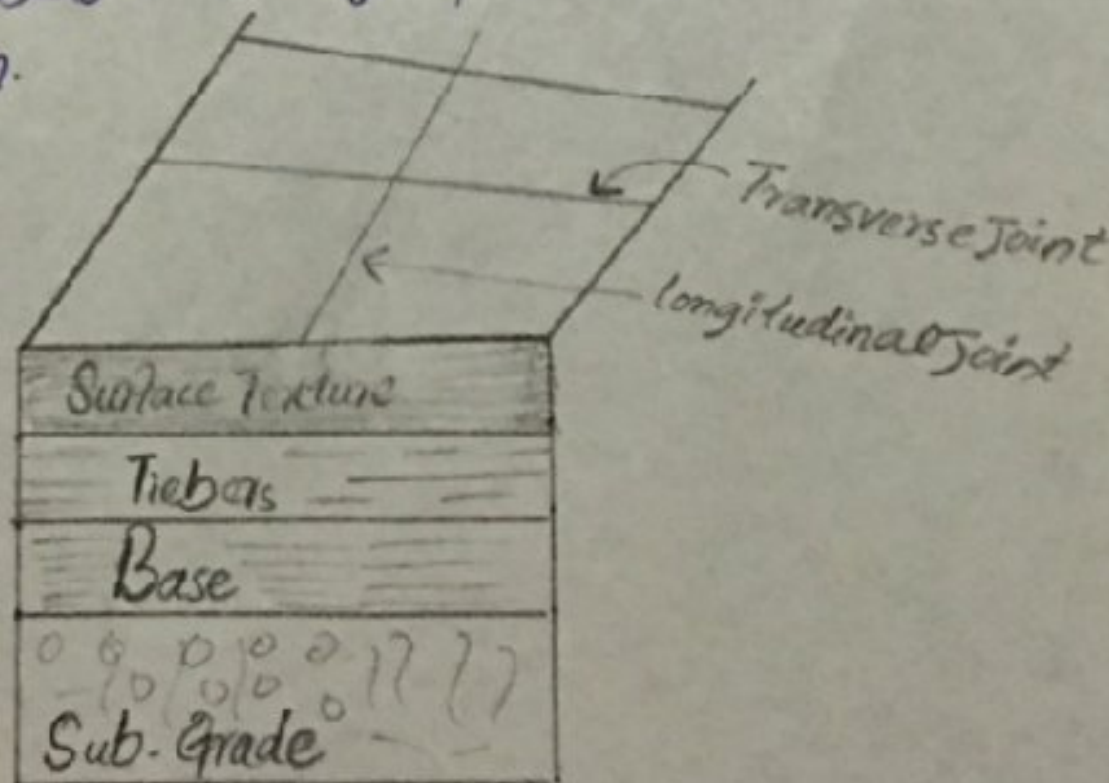 Transverse Joint
longitudinal Joint
Surface Texture
Tiebars
Base
Sub-Grade